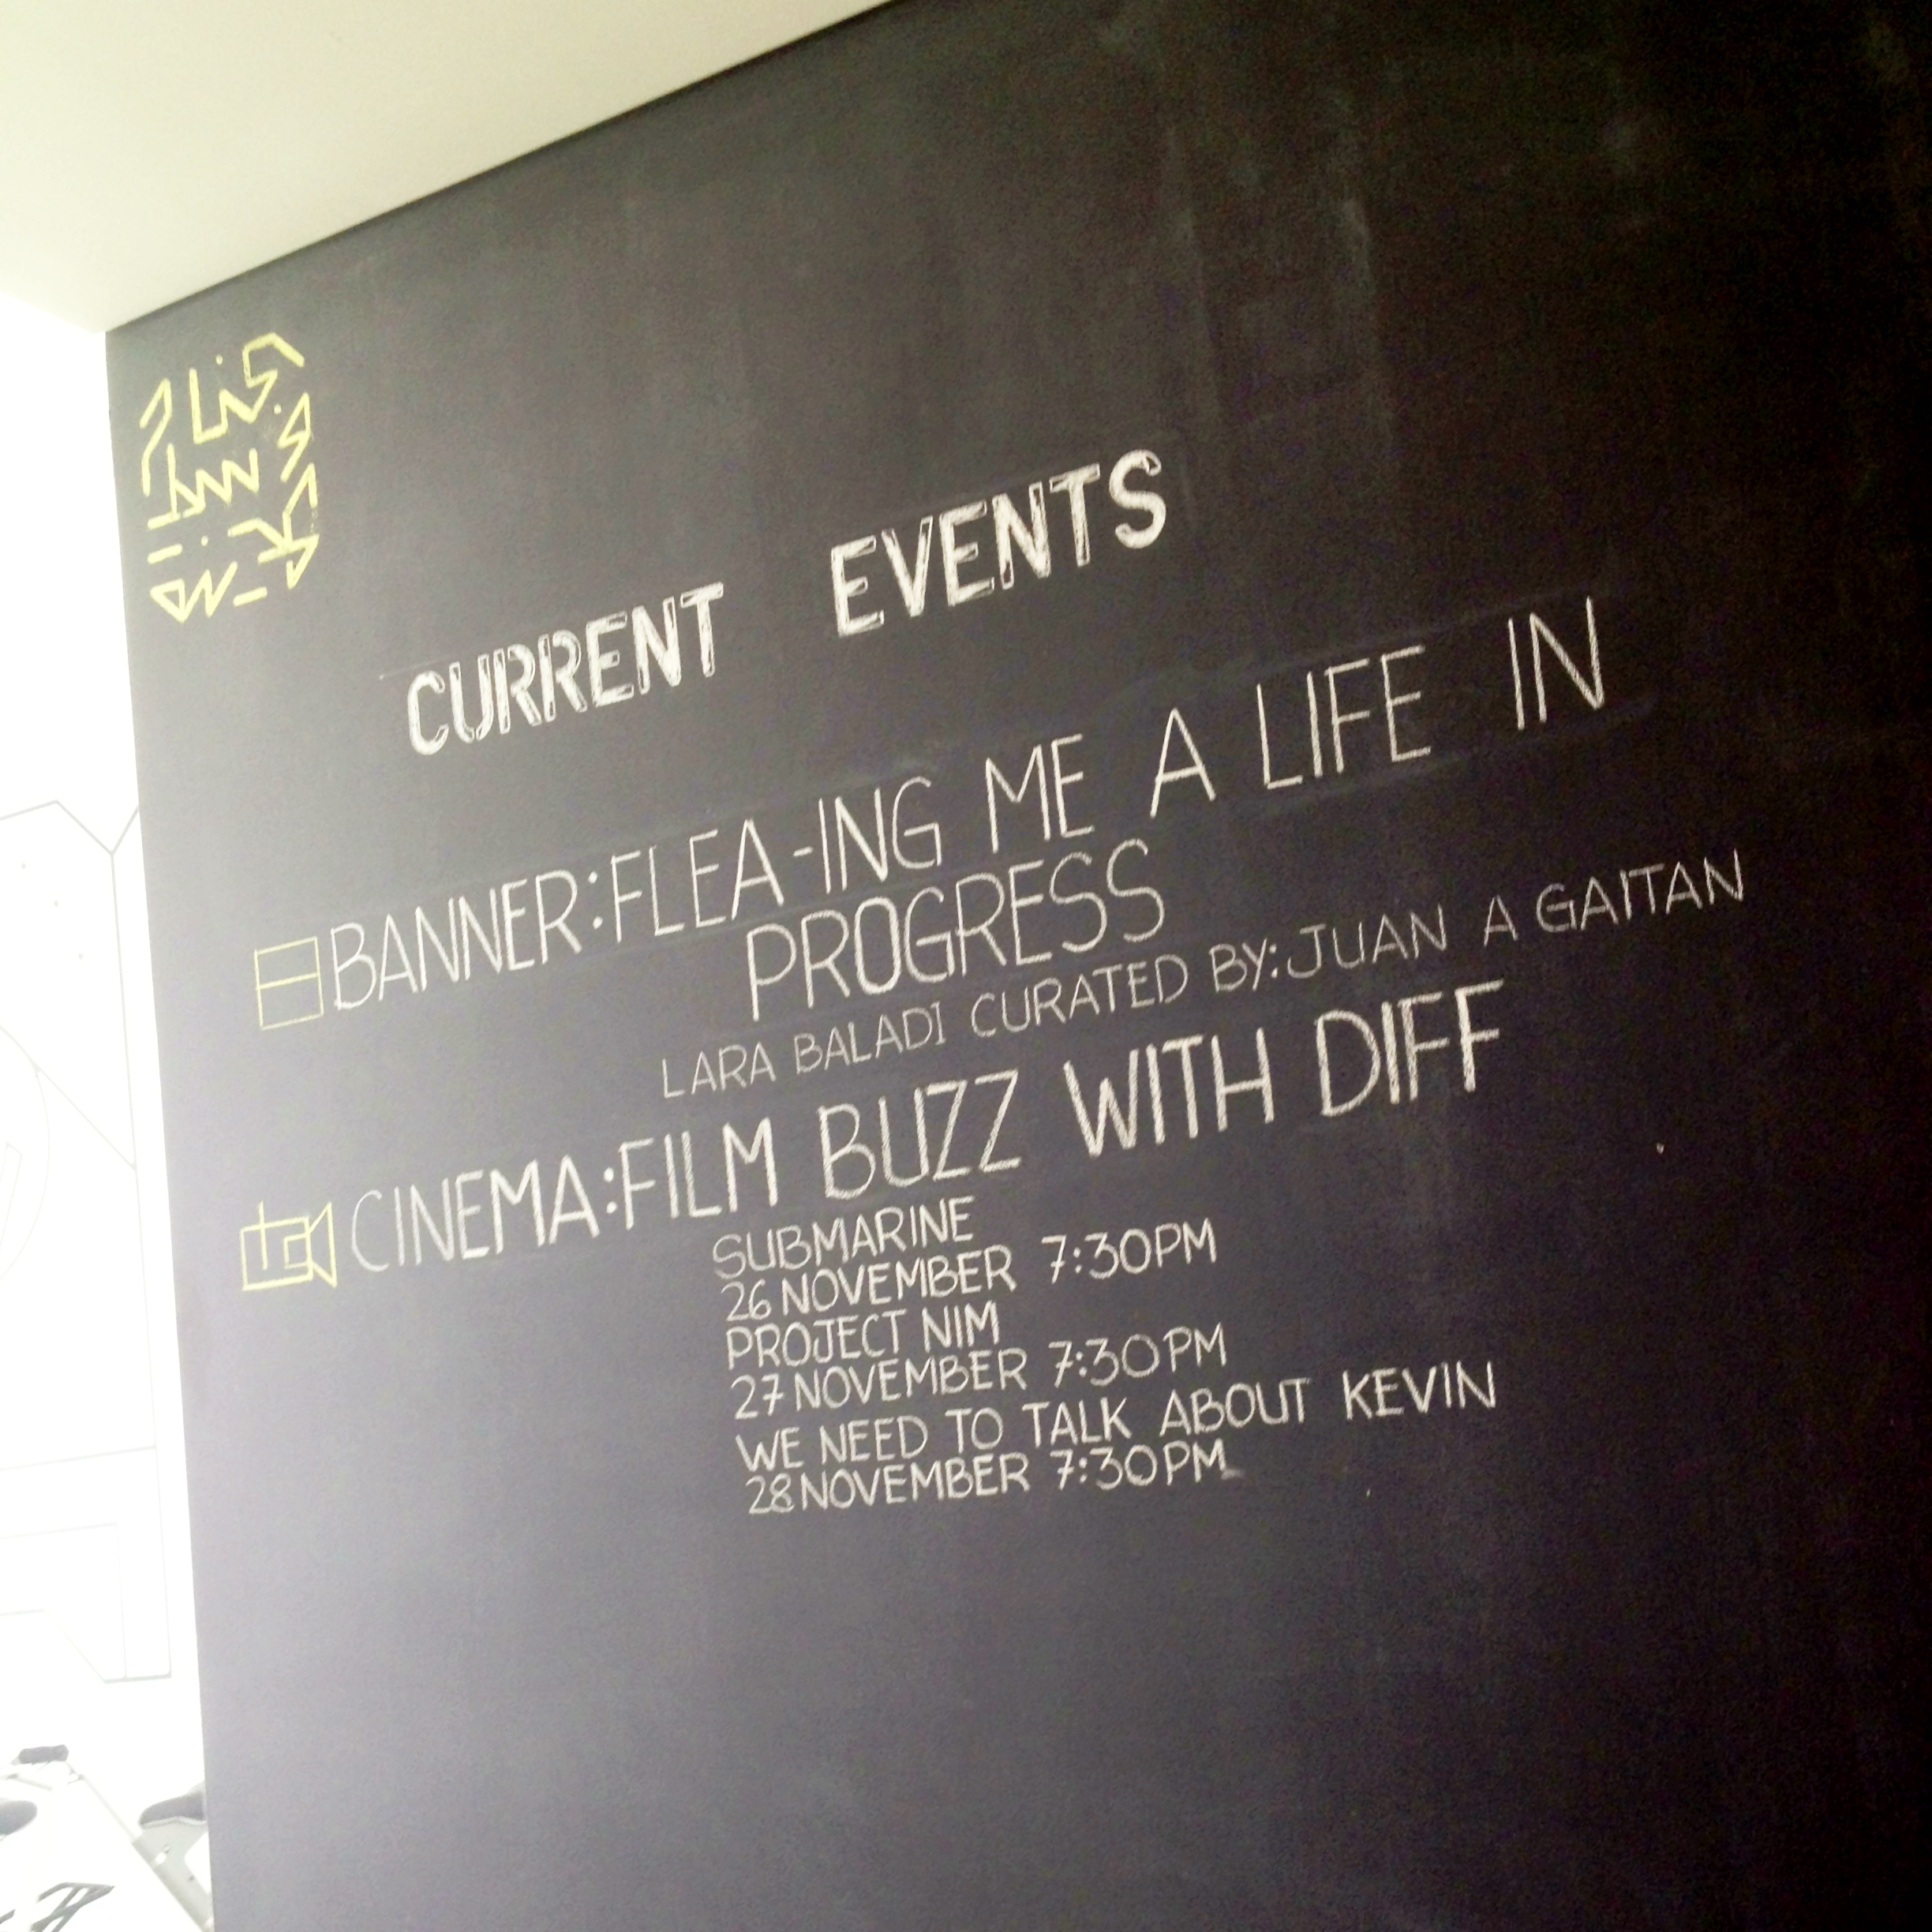 CURRENT EVENTS
BANNER:FLEA-ING ME A LIFE IN
PROGRESS
LARA BALADI CURATED BY:JUAN A GAITAN
CINEMA:FILM BUZZ WITH DIFF
SUBMARINE
26 NOVEMBER 7:30PM
PROJECT NIM
27 NOVEMBER 7:30PM
WE NEED TO TALK ABOUT KEVIN
28 NOVEMBER 7:30PM